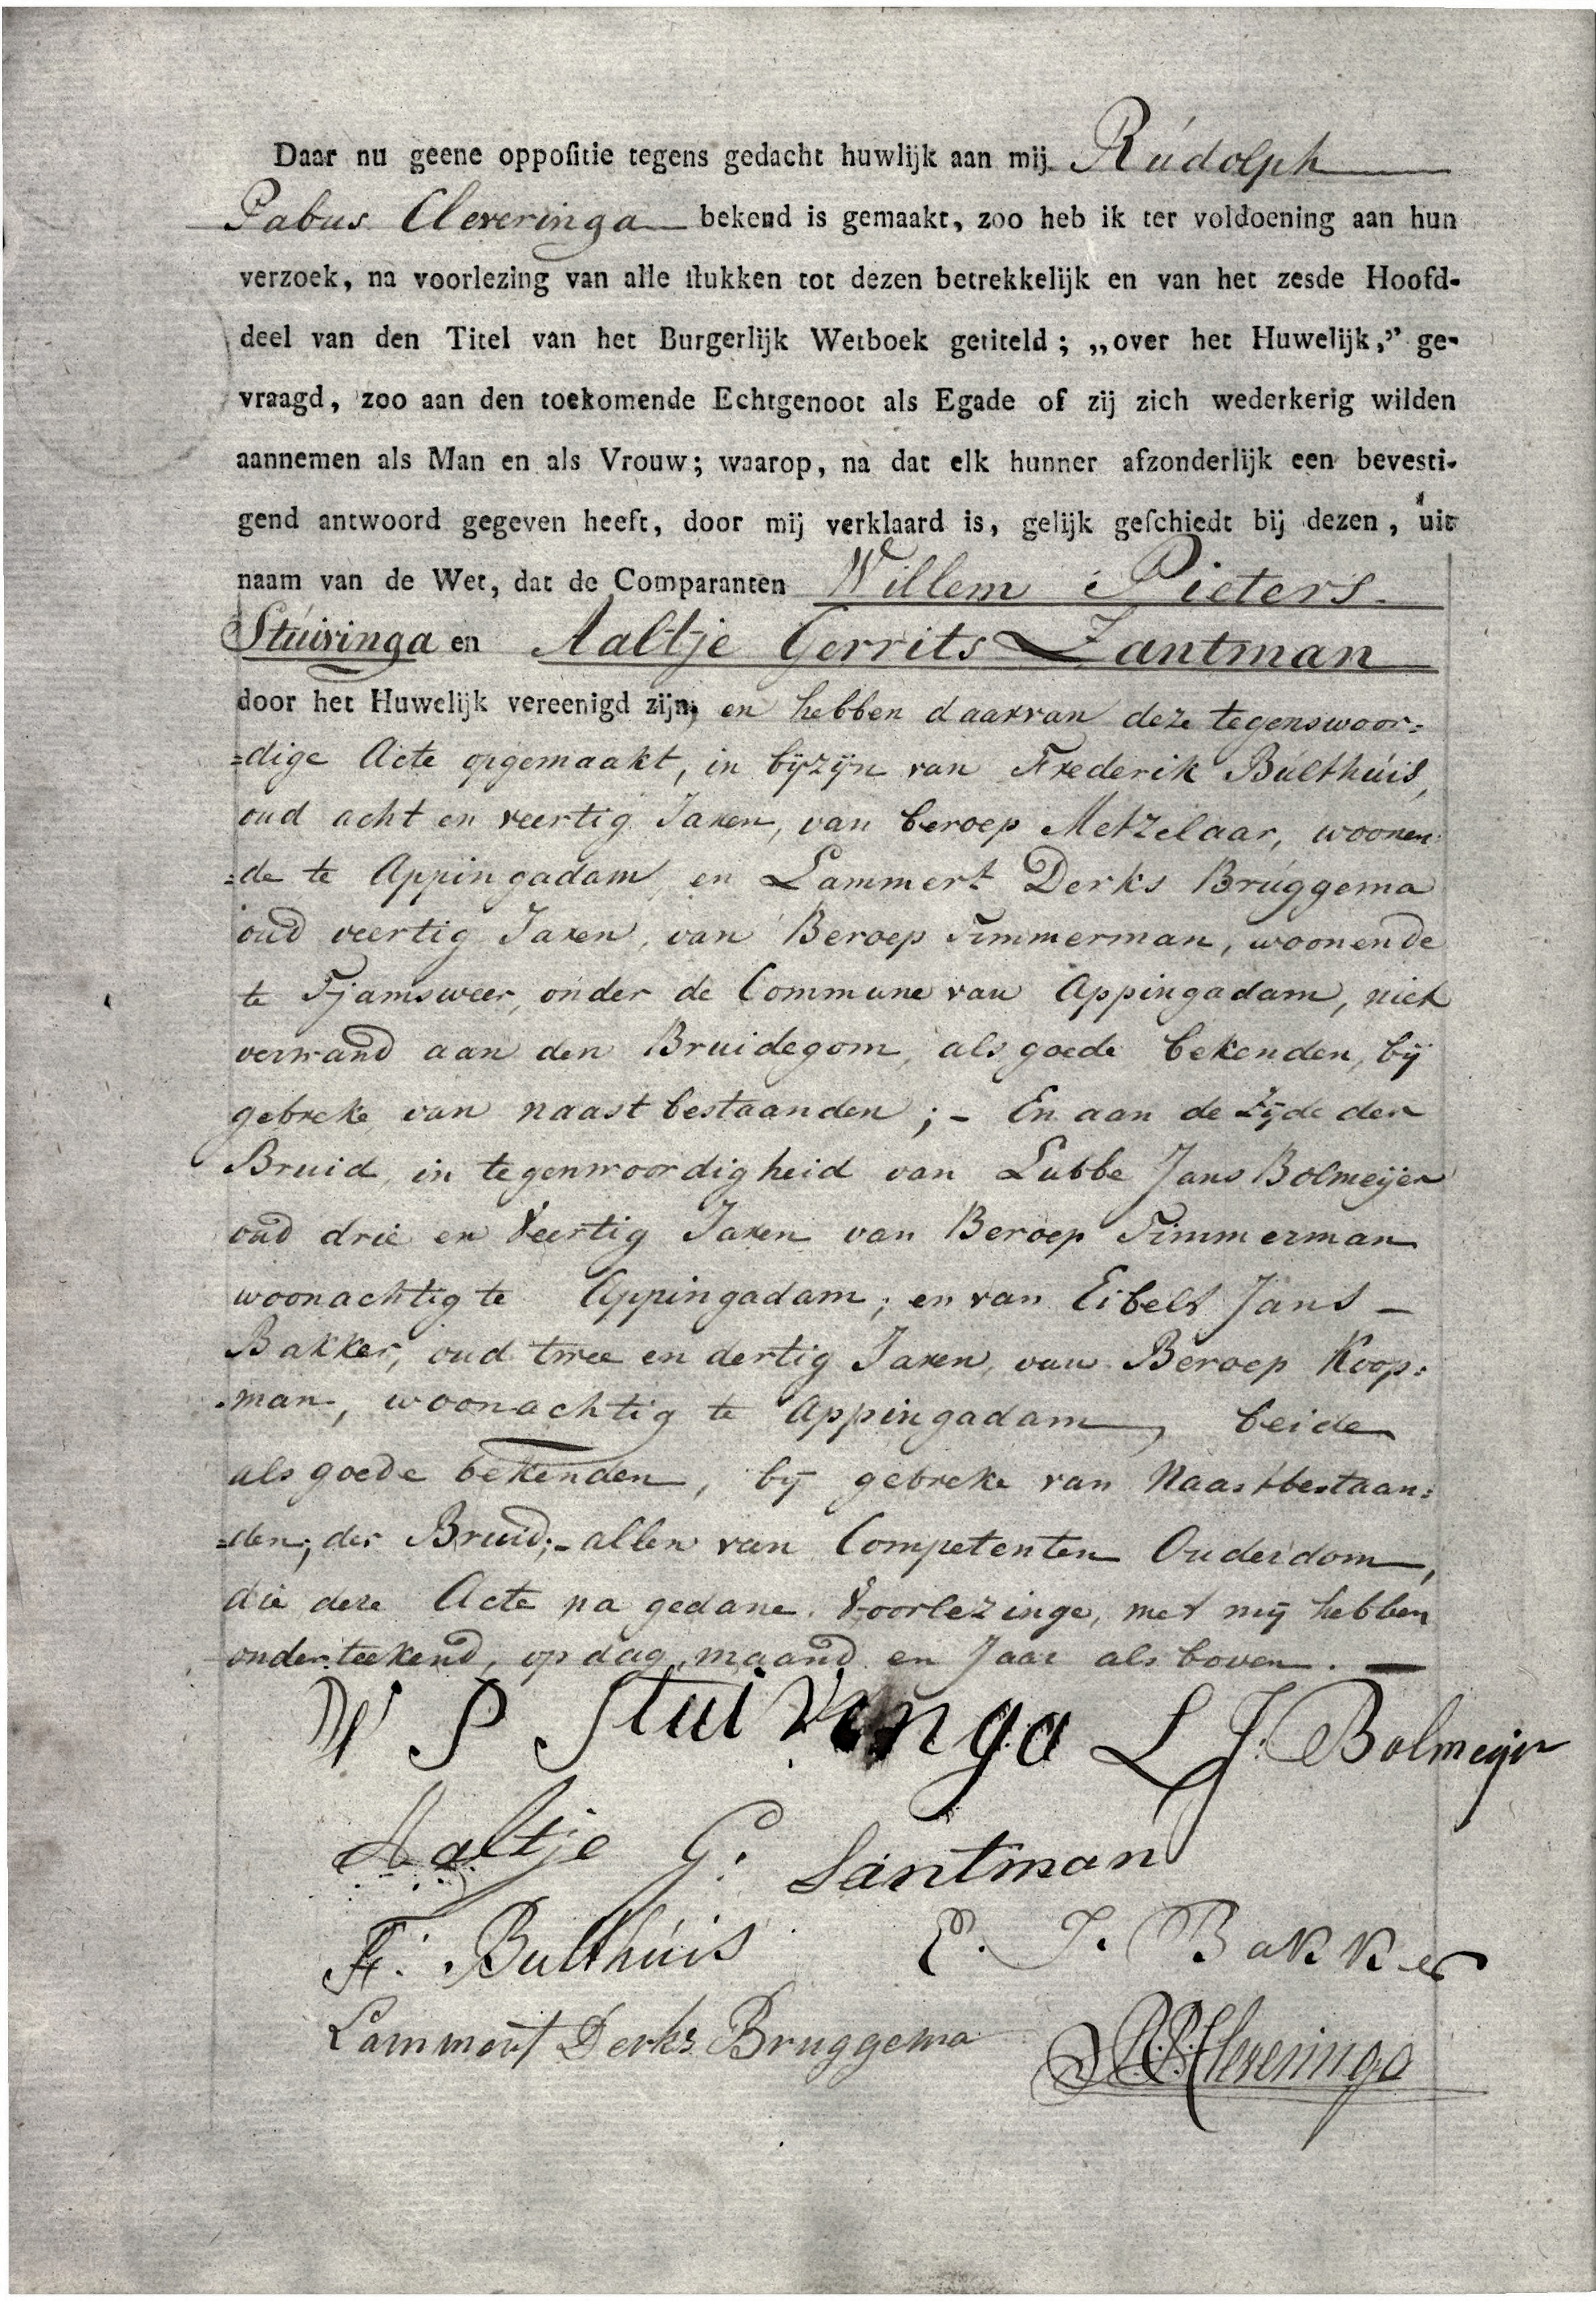 Daar nu geene oppositie tegens gedacht huwlijk aan mij Rúdolph
Pabus Cleveringa bekend is gemaakt, zoo heb ik ter voldoening aan hun
verzoek, na voorlezing van alle stukken tot dezen betrekkelijk en van het zesde Hoofd-
deel van den Titel van het Burgerlijk Wetboek getiteld; „over het Huwelijk,” ge-
vraagd, zoo aan den toekomende Echtgenoot als Egade of zij zich wederkerig wilden
aannemen als Man en als Vrouw; waarop, na dat elk hunner afzonderlijk een bevesti-
gend antwoord gegeven heeft, door mij verklaard is, gelijk geschiedt bij dezen, uit
naam van de Wet, dat de Comparanten Willem Pieters
Stúivinga en Aaltje Gerrits Zantman
door het Huwelijk vereenigd zijn, en hebben daarvan deze tegenswoor=
=dige Acte opgemaakt, in bÿzÿn van Frederik Búlthúis,
oud acht en veertig Jaren, van beroep Metzelaar, woonen
=de te Appingadam, en Lammert Derks Brúggema
oud veertig Jaren, van Beroep Timmerman, woonende
te Tjamsweer, onder de Commune van Appingadam, niet
verwand aan den Bruidegom, als goede bekenden, bÿ
gebreke van naastbestaanden; - En aan de Zÿde der
Bruid, in tegenwoordigheid van Lubbe Jans Bolmeijer
oud drie en Veertig Jaren van Beroep Timmerman
woonachtig te Appingadam; en van Eibelt Jans -
Bakker, oud twee en dertig Jaren, van Beroep Koop=
=man, woonachtig te Appingadam, beide
als goede bekenden, bÿ gebreke van Naastbestaan=
=den, der Bruid;- allen van Competenten Ouderdom,
die deze Acte na gedane Voorlezinge, met mÿ hebben
onderteekend, op dag, maand en Jaar als boven. -
W P Stuivinga L J. Bolmeijer
Aaltje G. Santman
F. Bulthúis E. J. Bakker
Lammert Derks Bruggema R.P. Cleveringa